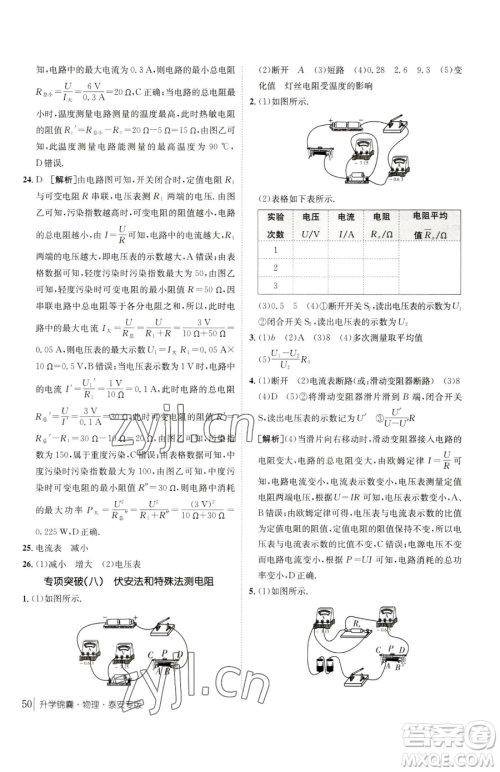 知,电路中的最大电流为 0.3 A,则电路的最小总电阻
R总小=U/I大=6 V/0.3 A=20 Ω,C 正确;当电路中的电流最大
时,温度测量电路测量的温度最高,此时热敏电阻
的阻值 R1′=R总小-R2=20 Ω-10 Ω=10 Ω,由图乙
可知,温度测量电路能测量的最高温度为 90 ℃,
D 错误.
24. D [解析]由电路图可知,开关闭合时,定值电阻 R1
与可变电阻 R 串联,电压表测 R1 两端的电压.由图
乙可知,污染指数越高时,可变电阻的阻值越小,电
路的总电阻越小,电路中的电流越大,定值电阻 R1
两端的电压越大,即电压表示数越大,A 错误;由表
格数据可知,轻度污染时污染指数最小是 100,由图
乙可知,此时可变电阻的最大阻值 R大=50 Ω,因
串联电路中总电阻等于各分电阻之和,所以,电路中
的最大电流 I大=U/R总=U/(R1+R)=3 V/(10 Ω+50 Ω)=
0.05 A,则电压表的示数 U1=I大R1=0.05 A×10 Ω=
0.5 V,B 错误;当电压表的示数为 1 V 时,电路中的电
流 I′=U1′/R1=1 V/10 Ω=0.1 A,则电路的总电阻
可变电阻的阻值
R′=R总′-R1=30 Ω-10 Ω=20 Ω,由图乙可知,污染
指数为 150,属于轻度污染,C 错误;由图表可知,中
度污染时污染指数最小是 151,由图乙可知,此时可
变电阻的最大阻值小于 20 Ω,则中度污染时电路
的总电阻小于 R″=30 Ω,所以,中度污染时,电路消
耗的最大功率
0.225 W,D 正确.
25. 电流表 减小
26. (1)减小 增大 (2)电压表
专项突破(八) 伏安法和特殊法测电阻
1. (1)如图所示.
(2)断开 A (3)短路 (4)0.28 2.6 9.3 (5)变
化值 灯丝电阻受温度的影响
2. (1)如图所示.
(2)表格如下表所示.
实验次数 电压 U/V 电流 I/A 电阻 Rx/Ω 电阻平均值 Rx/Ω
1
2
3
(3)0.5 5 (4)①断开开关 S2,读出电压表的示数 U1
②闭合开关 S2,读出电压表的示数 U2
3. (1)b (2)A (3)8 (4)多次测量取平均值
(5)(U1-U2)/U2 R1
4. (1)断开 (2)电流表断路(或:滑动变阻器断路) (3)8
(4)C (5)②将滑动变阻器滑片调到最右端,闭合
开关,读出电压表的示数 U′ ③U′/(U-U′) R
[解析](4)当滑片向右移动时,滑动变阻器接入电路的
电阻变大,电路的总电阻变大,由欧姆定律 I=U/R 可
知,电路中的电流变小,A 错误;电压表测量定值
电阻两端电压,根据 U=IR 可知,定值电阻两端电
压变小,即电压表示数变小,B 错误;
C 正确;电源电压不变,电
路中的电流变小,根据 P=UI 可知,电路消耗的
总功率变小,D 错误.
5. (1)如图所示.
50 升学锦囊·物理·泰安专版
zyjl.cn
zyjl.cn
答案圈
MXQE.COM